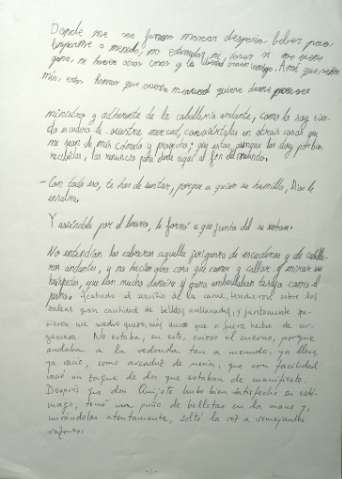 Donde no me sea forzoso mascar despacio, beber poco,
limpiarme a menudo, no estornudar ni toser si me viene
gana, ni hacer otras cosas que la soledad traen consigo. Ansí que, señor
mío, estas honras que vuestra merced quiere darme por ser
ministro y adherente de la caballería andante, como lo soy sien-
do escudero de vuestra merced, conviértalas en otras cosas que
me sean de más cómodo y provecho; que estas, aunque las doy por bien
recibidas, las renuncio para desde aquí al fin del mundo.
- Con todo eso, te has de sentar, porque a quien se humilla, Dios le
ensalza.
Y asiéndole por el brazo, le forzó a que junto del se sentase.
No entendían los cabreros aquella jerigonza de escuderos y de caballe-
ros andantes, y no hacían otra cosa que comer y callar, y mirar a sus
huéspedes, que con mucho donaire y gana embaulaban tasajo como el
puño. Acabado el servicio de la carne, tendieron sobre las
zaleas gran cantidad de bellotas avellanadas, y juntamente pu-
sieron un medio queso, más duro que si fuera hecho de ar-
gamasa. No estaba, en esto, ocioso el cuerno, porque
andaba a la redonda tan a menudo, ya lleno,
ya vacío, como arcaduz de noria, que con facilidad
vació un zaque de dos que estaban de manifiesto.
Después que don Quijote hubo bien satisfecho su estó-
mago, tomó un puño de bellotas en la mano y,
mirándolas atentamente, soltó la voz a semejantes
razones: